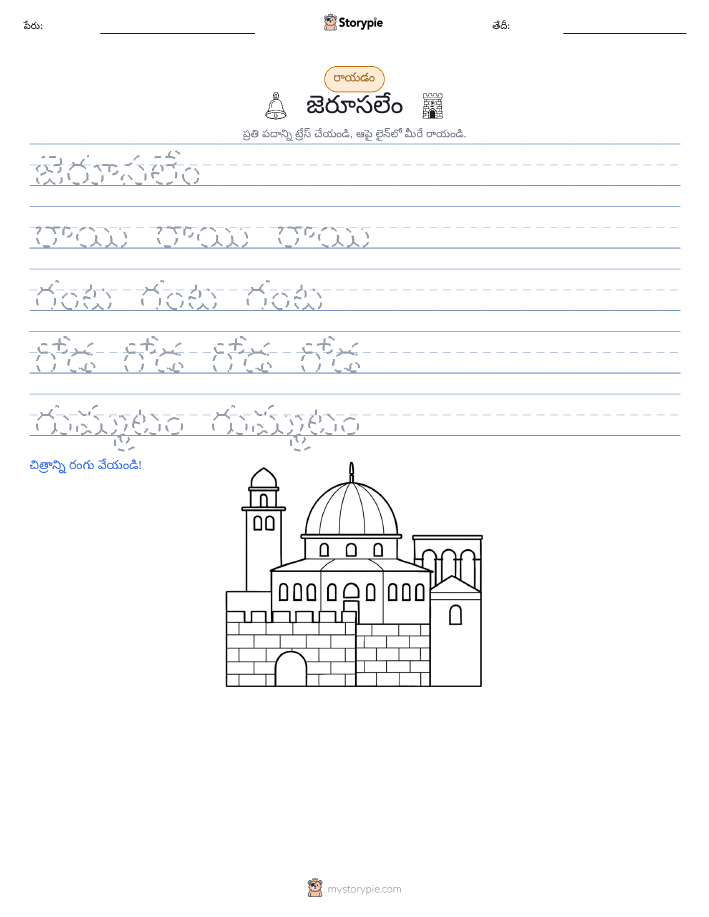 పేరు: Storypie తేదీ:
రాయడం
జెరూసలేం
ప్రతి పదాన్ని ట్రేస్ చేయండి, ఆపై లైన్‌లో మీరే రాయండి.
జెరూసలేం
రాయి రాయి రాయి
గంట గంట గంట
గోడ గోడ గోడ గోడ
గుమ్మటం గుమ్మటం
చిత్రాన్ని రంగు వేయండి!
mystorypie.com